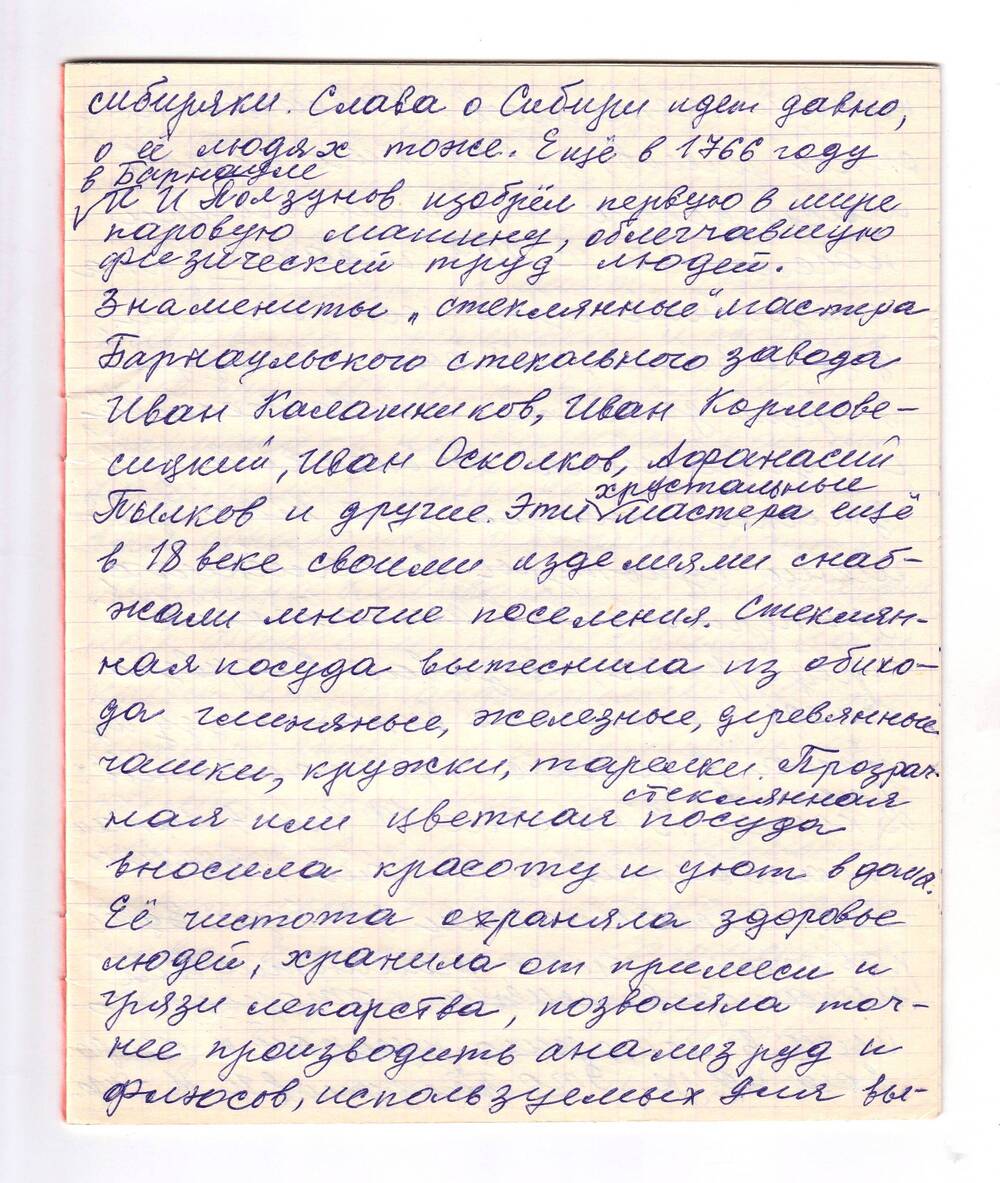 сибиряки. Слава о Сибири идет давно,
о её людях тоже. Ещё в 1766 году
в Барнауле
И И Ползунов изобрёл первую в мире
паровую машину, облегчавшую
физический труд людей.
Знамениты „стеклянные" мастера
Барнаульского стекольного завода
Иван Калашников, Иван Кормове-
сицкий, Иван Осколков, Афанасий
Пылков и другие. Эти мастера ещё
хрустальные
в 18 веке своими изделиями снаб-
жали многие поселения. Стеклян-
ная посуда вытеснила из обихо-
да глиняные, железные, деревянные
чашки, кружки, тарелки. Прозрач-
стеклянная
ная или цветная посуда
вносила красоту и уют в дома.
Её чистота охраняла здоровье
людей, хранила от примеси и
грязи лекарства, позволяла точ-
нее производить анализ руд и
флюсов, используемых для вы-